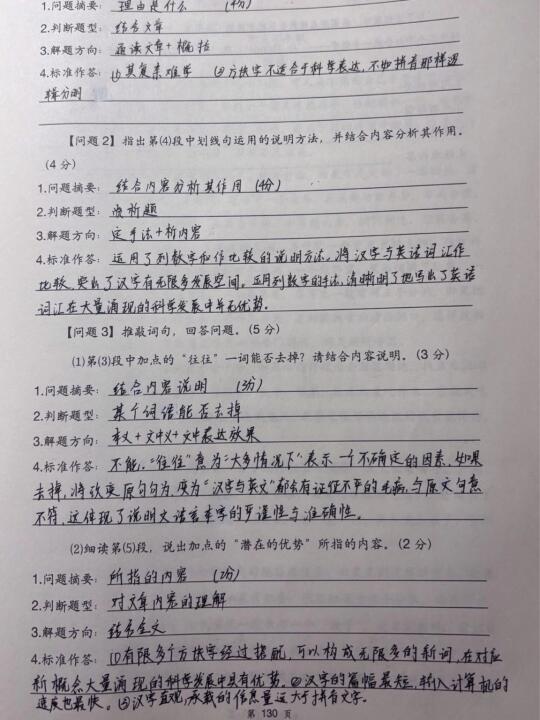 1.问题摘要: 理由是什么 (4分)
2.判断题型: 结合文章
3.解题方向: 通读文章+概括
4.标准作答: ⑴其复杂难学 ⑵方块字不适合于科学表达,不如拼音那样逻
辑分明
【问题2】指出第⑷段中划线句运用的说明方法,并结合内容分析其作用。
(4 分)
1.问题摘要: 结合内容分析其作用 (4分)
2.判断题型: 赏析题
3.解题方向: 定手法+析内容
4.标准作答: 运用了列数字和作比较的说明方法。将汉字与英语词汇作
比较,突出了汉字有无限多发展空间。运用列数字的手法,清晰明了地写出了英语
词汇在大量涌现的科学发展中并无优势。
【问题3】推敲词句,回答问题。(5 分)
(1)第(3)段中加点的“往往”一词能否去掉?请结合内容说明。(3 分)
1.问题摘要: 结合内容说明 (3分)
2.判断题型: 某个词语能否去掉
3.解题方向: 本义+文中义+文中表达效果
4.标准作答: 不能,“往往”意为“大多情况下”表示一个不确定的因素,如果
去掉,将改变原句句为,变为“汉字与英文”都会有证征不平的毛病,与原文句意
不符,这体现了说明文语言本字的严谨性与准确性。
(2)细读第(5)段,说出加点的“潜在的优势”所指的内容。(2 分)
1.问题摘要: 所指的内容 (2分)
2.判断题型: 对文章内容的理解
3.解题方向: 结合全文
4.标准作答: ⑴有限多个方块字经过搭配,可以构成无限多的新词,在对应
新概念大量涌现的科学发展中具有优势。⑵汉字的篇幅最短,输入计算机的
速度也最快。⑶汉字直观,承载的信息量远大于拼音文字。
第 130 页